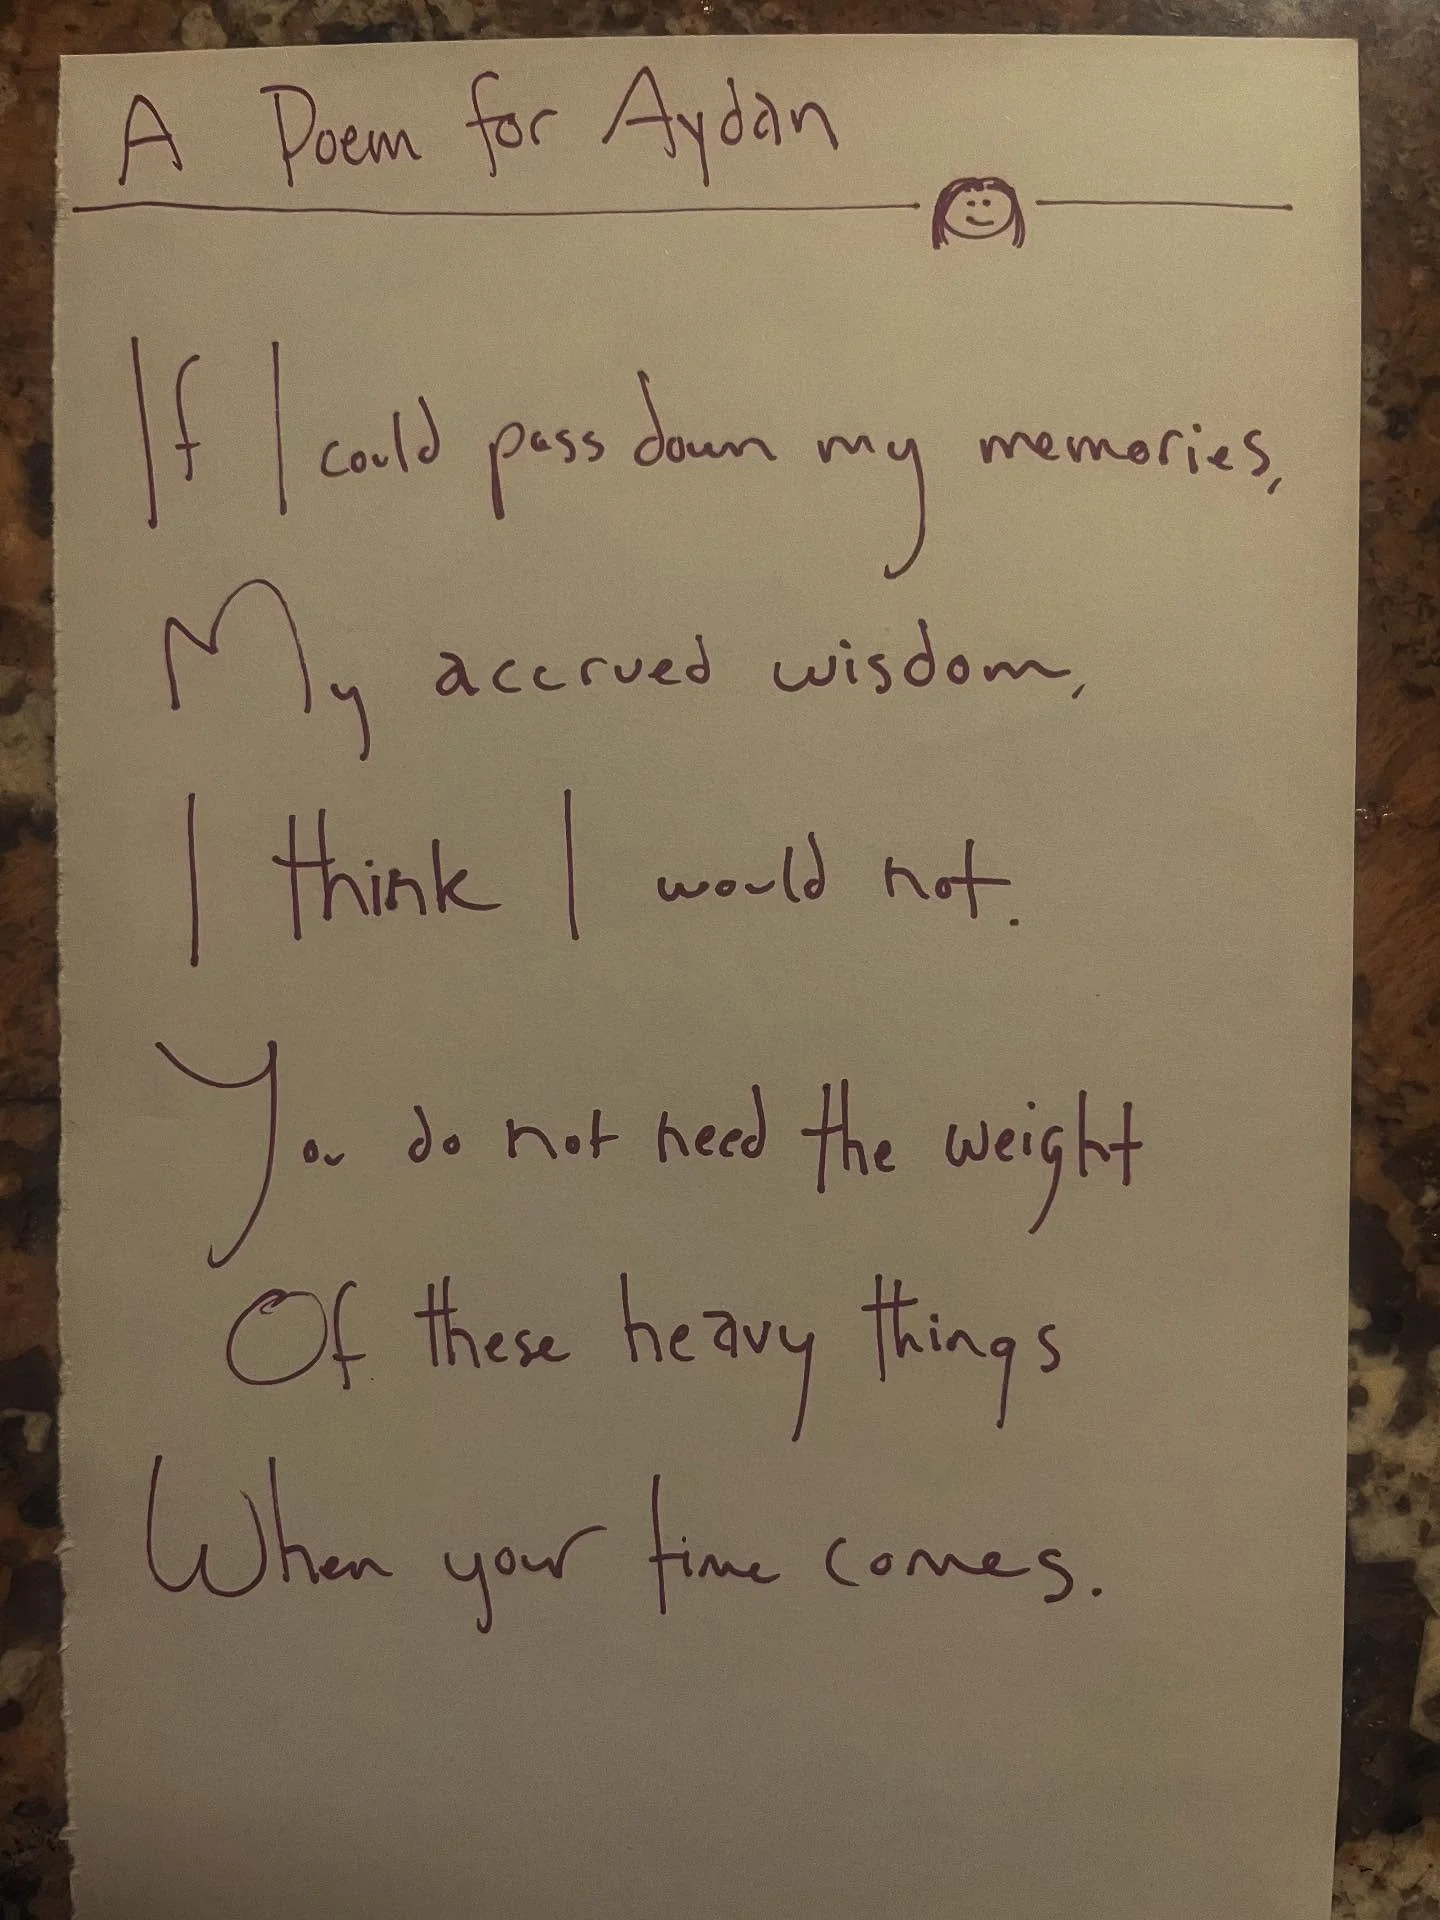 A Poem for Aydan
If I could pass down my memories,
My accrued wisdom,
I think I would not.
You do not need the weight
Of these heavy things
When your time comes.